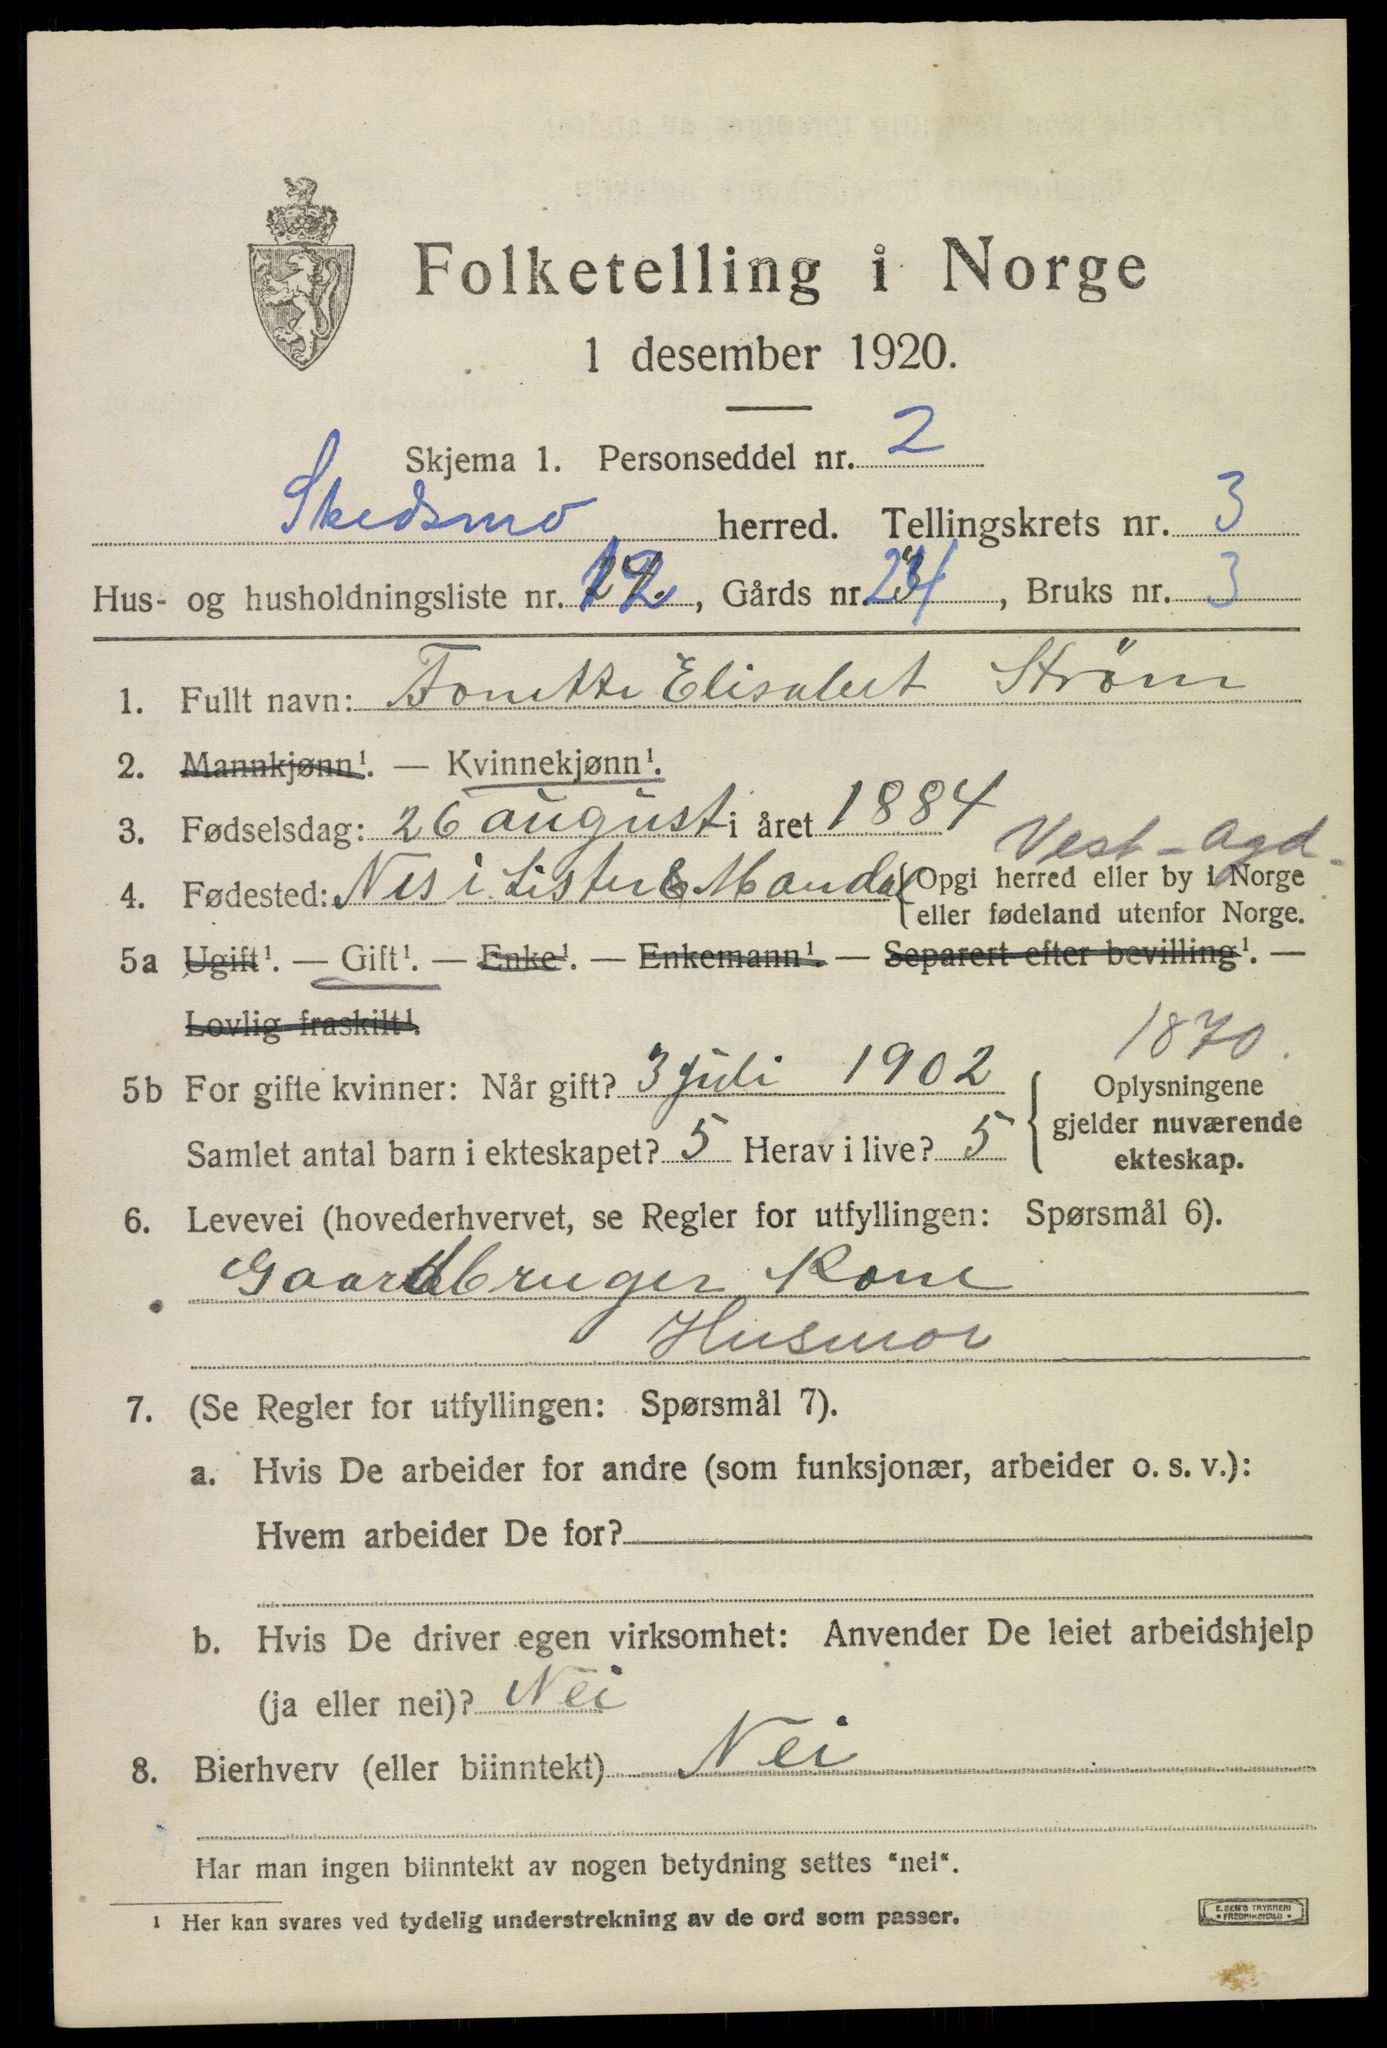 Folketelling i Norge
1 desember 1920.
Skjema 1. Personseddel nr. 2
Skedsmo herred. Tellingskrets nr. 3
Hus- og husholdningsliste nr. 12, Gårds nr. 24, Bruks nr. 3
1. Fullt navn: Tonette Elisabet Strøm
2. Mannkjønn¹. — Kvinnekjønn¹.
3. Fødselsdag: 26 august i året 1884
Vest-Agd.
4. Fødested: Nes i Lister & Mandal {Opgi herred eller by i Norge
eller fødeland utenfor Norge.
5a Ugift¹. — Gift¹. — Enke¹. — Enkemann¹ — Separert efter bevilling¹. —
Lovlig fraskilt¹.
1870.
5b For gifte kvinner: Når gift? 3 juli 1902 { Oplysningene
gjelder nuværende
Samlet antal barn i ekteskapet? 5 Herav i live? 5 ekteskap.
6. Levevei (hovederhvervet, se Regler for utfyllingen: Spørsmål 6).
Gaardbruger Kone
Husmor
7. (Se Regler for utfyllingen: Spørsmål 7).
a. Hvis De arbeider for andre (som funksjonær, arbeider o. s. v.):
Hvem arbeider De for?
b. Hvis De driver egen virksomhet: Anvender De leiet arbeidshjelp
(ja eller nei)? Nei
8. Bierhverv (eller biinntekt) Nei
Har man ingen biinntekt av nogen betydning settes "nei".
1 Her kan svares ved tydelig understrekning av de ord som passer.
E. SEM'S TRYKKERI
• FREDRIKSHALD •